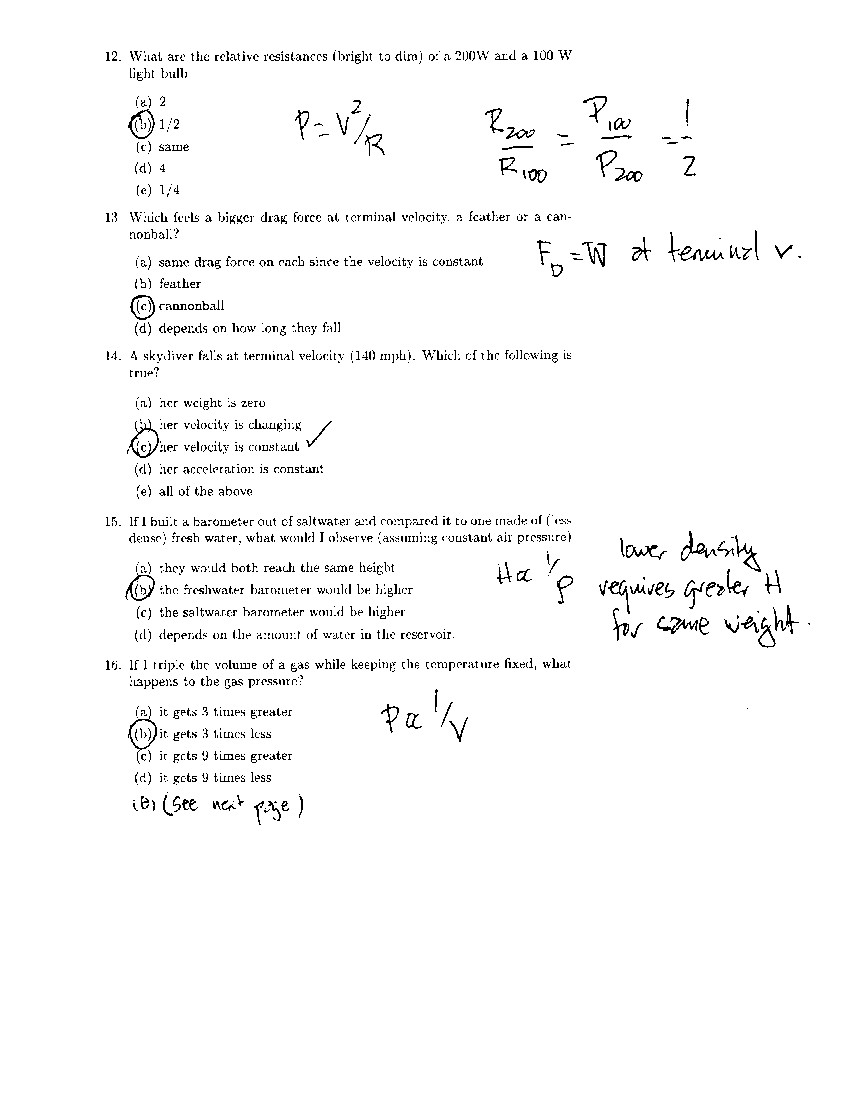 12. What are the relative resistances (bright to dim) of a 200W and a 100 W
light bulb
(a) 2
(b) 1/2
(c) same
(d) 4
(e) 1/4
P = V²/R
R₂₀₀/R₁₀₀ = P₁₀₀/P₂₀₀ = 1/2
13. Which feels a bigger drag force at terminal velocity, a feather or a can-
nonball?
(a) same drag force on each since the velocity is constant
(b) feather
(c) cannonball
(d) depends on how long they fall
F_D = W at terminal v.
14. A skydiver falls at terminal velocity (140 mph). Which of the following is
true?
(a) her weight is zero
(b) her velocity is changing
(c) her velocity is constant ✓
(d) her acceleration is constant
(e) all of the above
15. If I built a barometer out of saltwater and compared it to one made of (less
dense) fresh water, what would I observe (assuming constant air pressure)
(a) they would both reach the same height
(b) the freshwater barometer would be higher
(c) the saltwater barometer would be higher
(d) depends on the amount of water in the reservoir.
H α 1/ρ
lower density
requires greater H
for same weight.
16. If I triple the volume of a gas while keeping the temperature fixed, what
happens to the gas pressure?
(a) it gets 3 times greater
(b) it gets 3 times less
(c) it gets 9 times greater
(d) it gets 9 times less
P α 1/V
(e) (see next page)